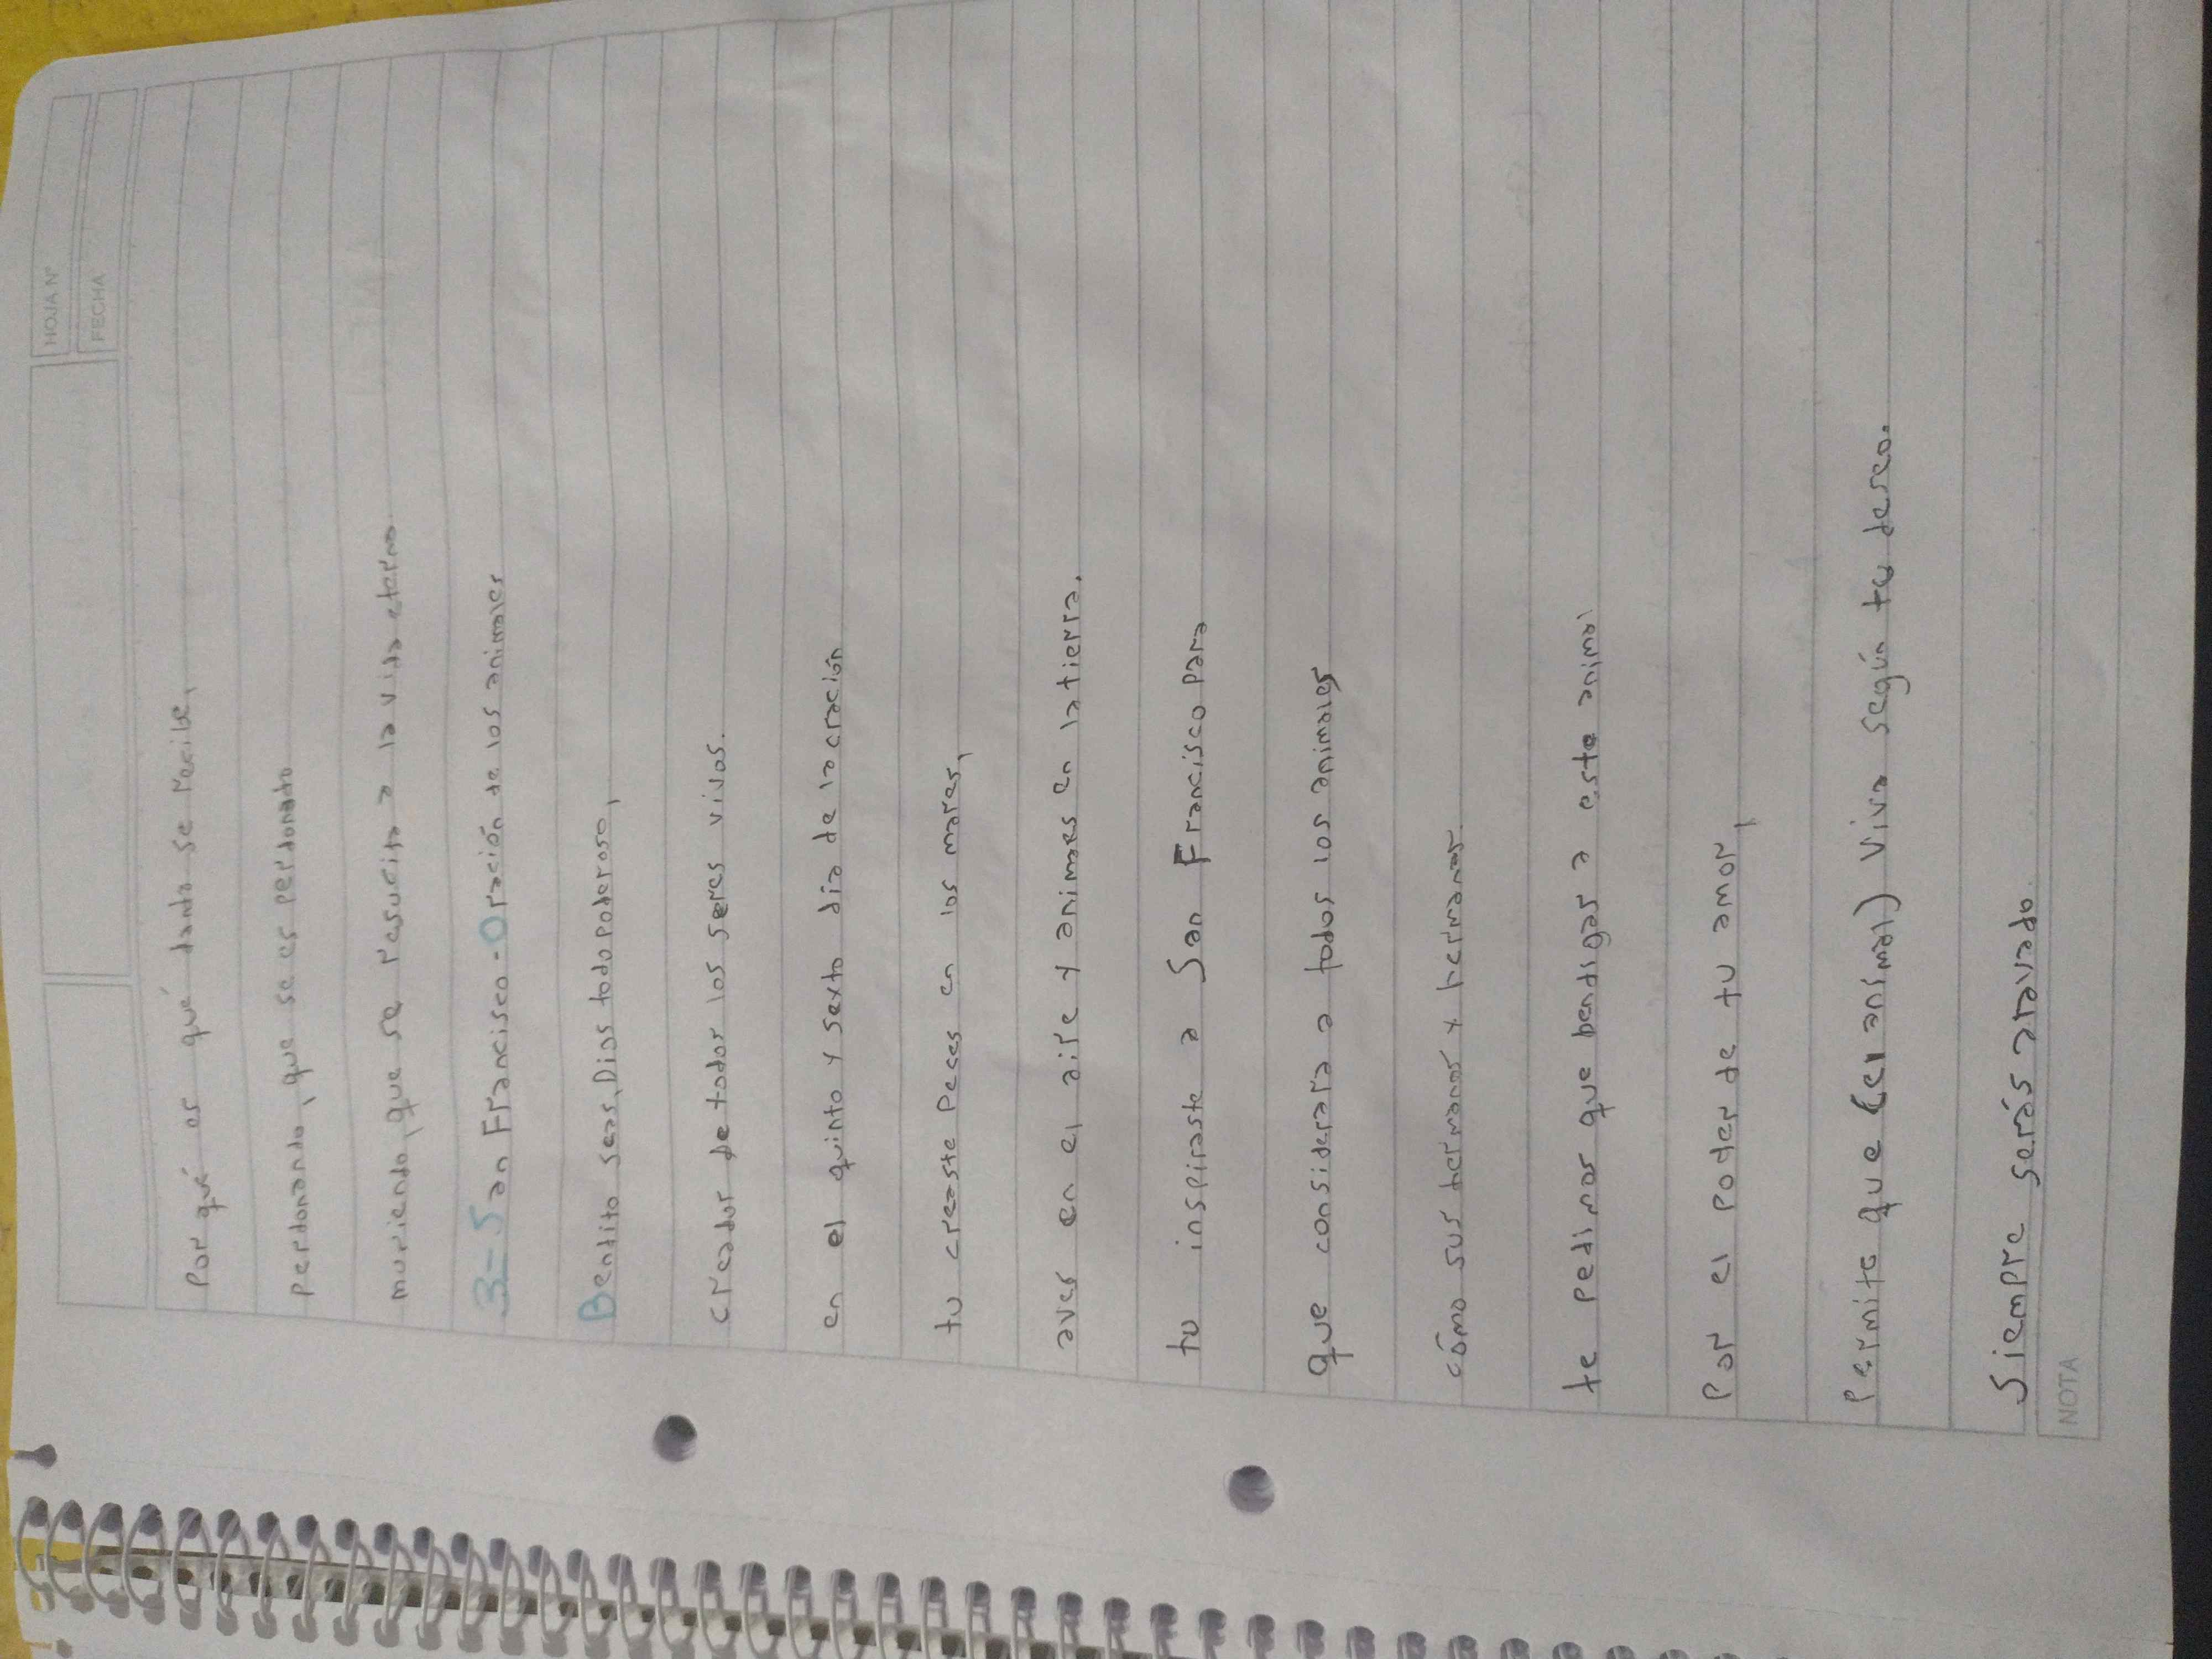 HOJA N°
FECHA
Por qué es qué dando se recibe,
perdonando, que se es perdonado
muriendo, que se resucita a la vida eterna
3-San Francisco-Oración de los animales
Bendito seas, Dios todopoderoso,
creador de todos los seres vivos.
en el quinto y sexto día de la cración
tu creaste peces en los mares,
aves en el aire y animaes en la tierra.
tu inspiraste a San Francisco para
que considerara a todos los animales
cómo sus hermanos y hermanas.
te pedimos que bendigas a este animal
Por el poder de tu amor,
Permite que (el animal) viva según tu deseo.
Siempre serás aravado.
NOTA